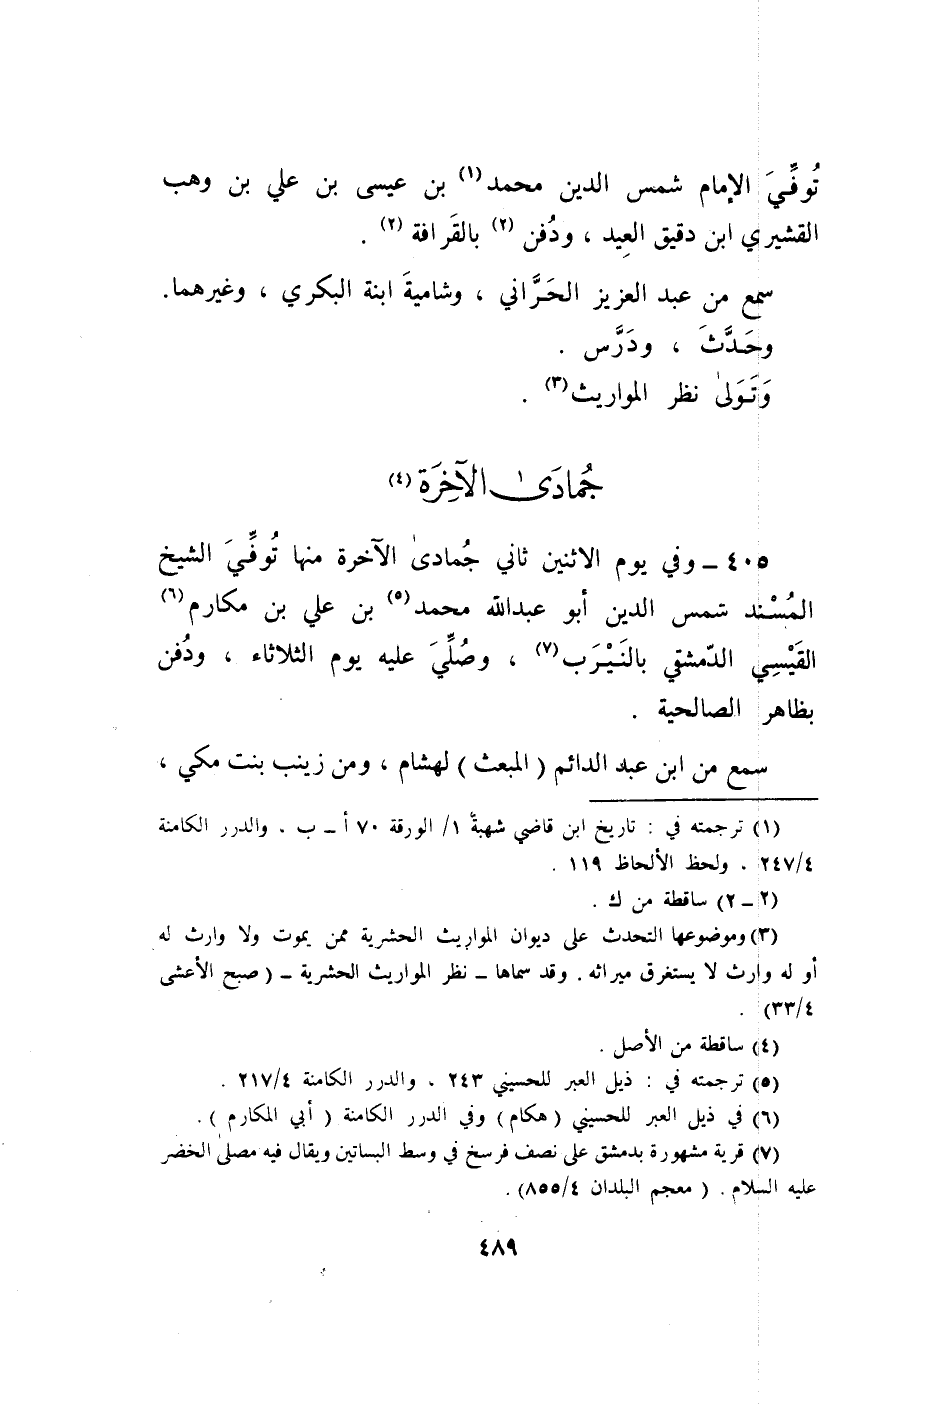 تُوفِّيَ الإمام شمس الدين محمد(١) بن عيسى بن علي بن وهب
القشيري ابن دقيق العِيد ، ودُفن (٢) بالقَرافة (٢) .
سمع من عبد العزيز الحَرَّاني ، وشاميةَ ابنة البكري ، وغيرهما.
وحَدَّثَ ، ودَرَّس .
وَتَوَلىٰ نظر المواريث(٣) .
جُمادَىٰ الآخِرَة (٤)
٤٠٥ ـ وفي يوم الاثنين ثاني جُمادىٰ الآخرة منها تُوفِّيَ الشيخ
المُسْنِد شمس الدين أبو عبدالله محمد(٥) بن علي بن مكارم(٦)
القَيْسِي الدّمشقي بالنَيْرَب(٧) ، وصُلِّيَ عليه يوم الثلاثاء ، ودُفن
بظاهر الصالحية .
سمع من ابن عبد الدائم ( المبعث ) لهشام ، ومن زينب بنت مكي ،
(١) ترجمته في : تاريخ ابن قاضي شهبة ١/ الورقة ٧٠ أ ـ ب . والدرر الكامنة
٢٤٧/٤ . ولحظ الألحاظ ١١٩ .
(٢ ـ ٢) ساقطة من ك .
(٣) وموضوعها التحدث على ديوان المواريث الحشرية ممن يموت ولا وارث له
أو له وارث لا يستغرق ميراثه . وقد سماها ـ نظر المواريث الحشرية ـ ( صبح الأعشى
٣٣/٤) .
(٤) ساقطة من الأصل .
(٥) ترجمته في : ذيل العبر للحسيني ٢٤٣ . والدرر الكامنة ٢١٧/٤ .
(٦) في ذيل العبر للحسيني (هكام) وفي الدرر الكامنة ( أبي المكارم ) .
(٧) قرية مشهورة بدمشق على نصف فرسخ في وسط البساتين ويقال فيه مصلىٰ الخضر
عليه السلام . ( معجم البلدان ٨٥٥/٤) .
٤٨٩